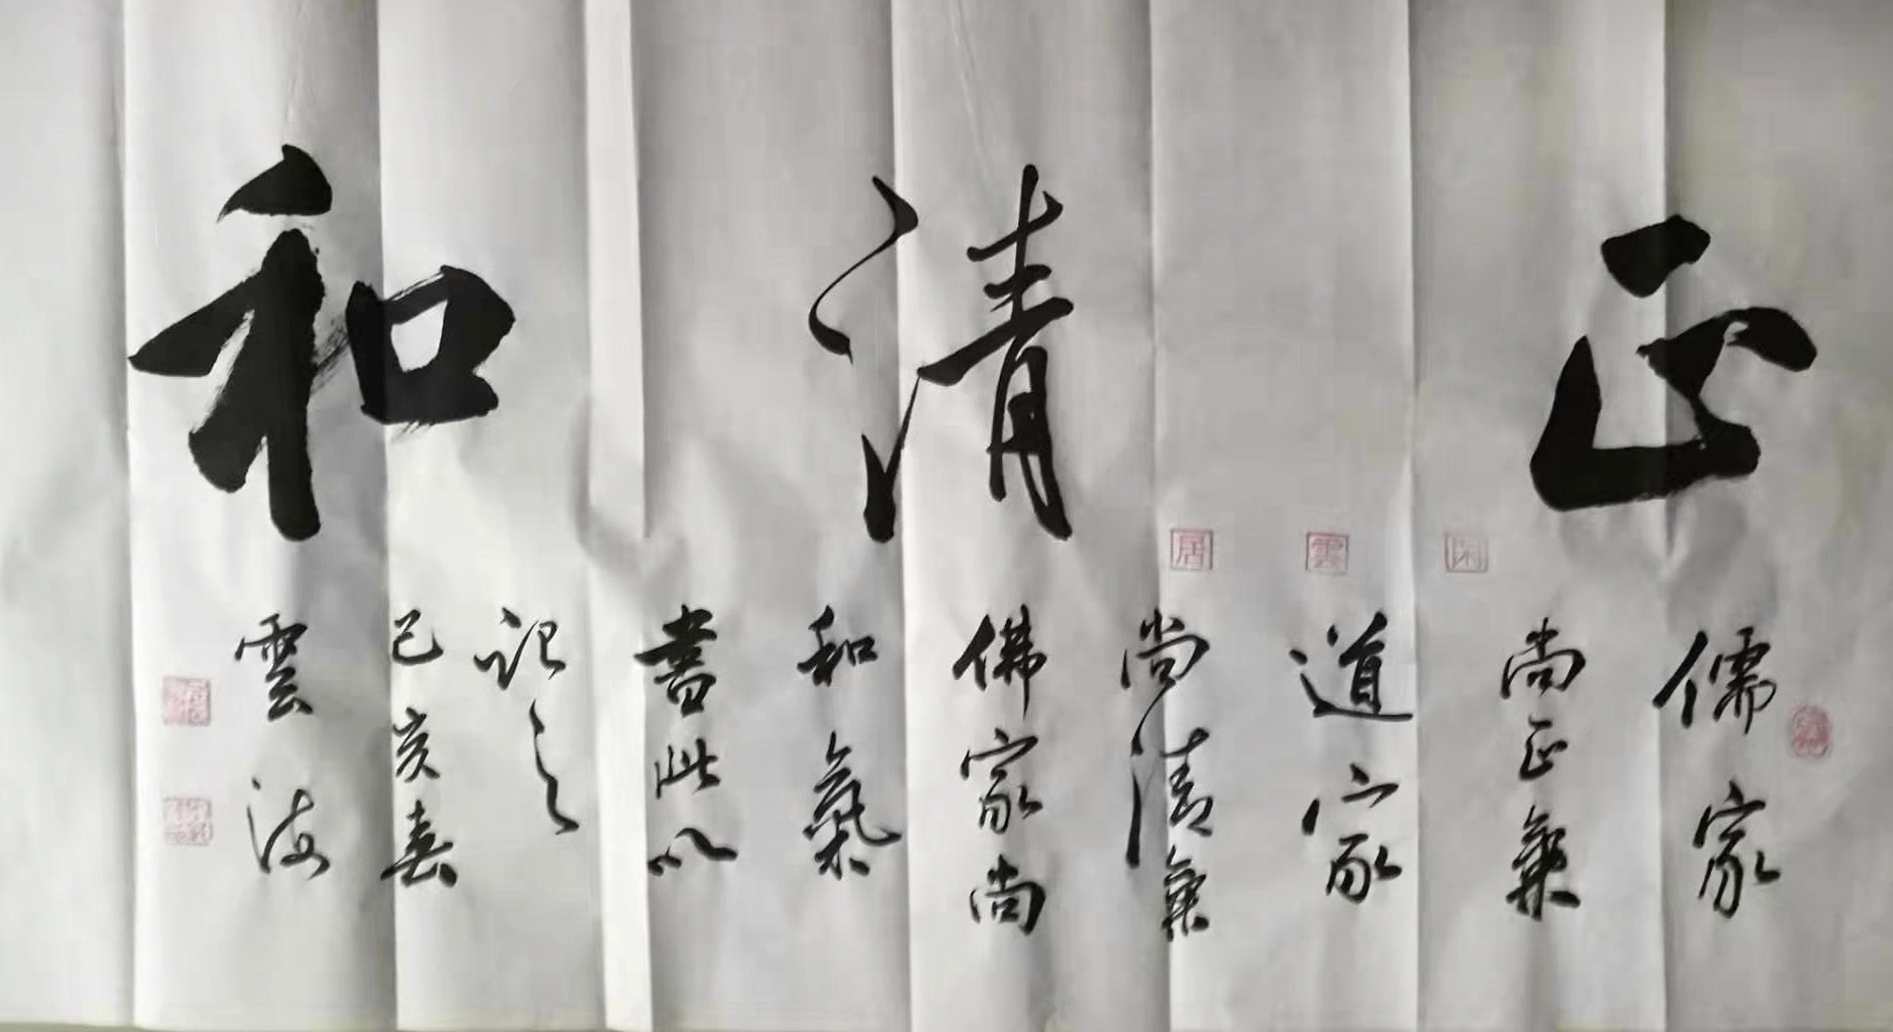 正清和
儒家
尚正氣
道家
尚清氣
佛家尚
和氣
書此以
記之
己亥春
雲海
閑
雲
居